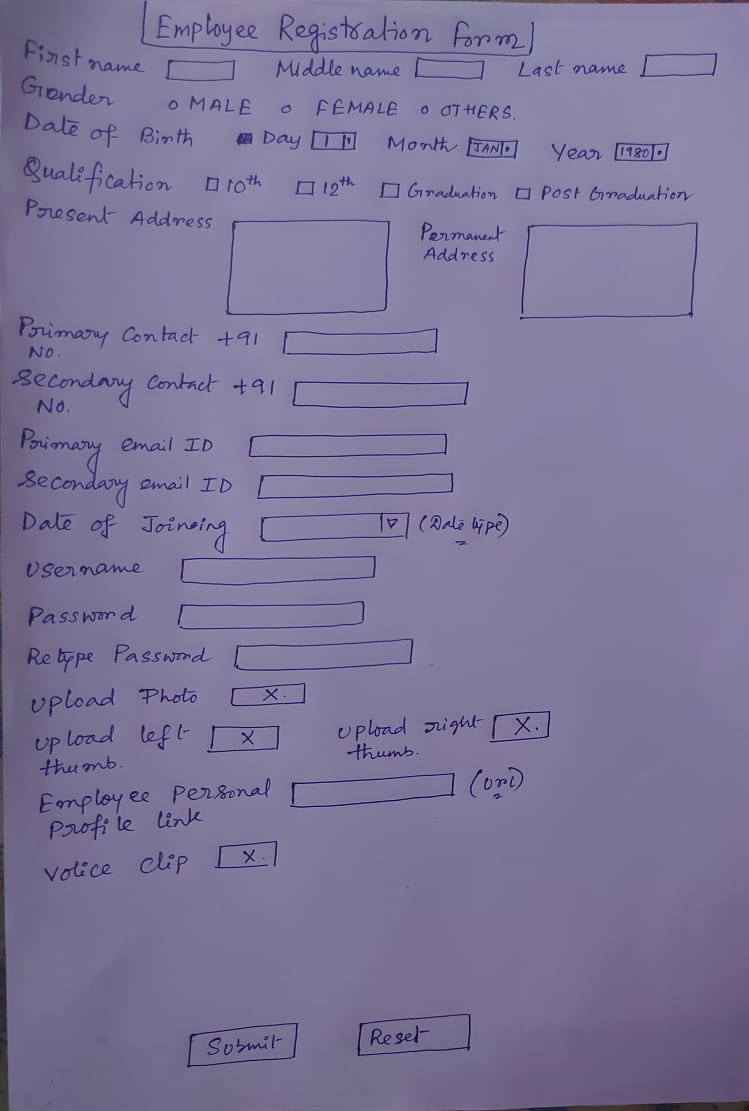 Employee Registration Form
First name Middle name Last name
Gender MALE FEMALE OTHERS.
Date of Birth Day 1 Month JAN Year 1980
Qualification 10th 12th Graduation Post Graduation
Present Address Permanent
Address
Primary Contact +91
No.
Secondary Contact +91
No.
Primary email ID
Secondary email ID
Date of Joineing (Date type)
Username
Password
Retype Password
Upload Photo X.
Upload left X Upload right X.
thumb. thumb.
Employee Personal (url)
Profile link
Voice clip X.
Submit Reset